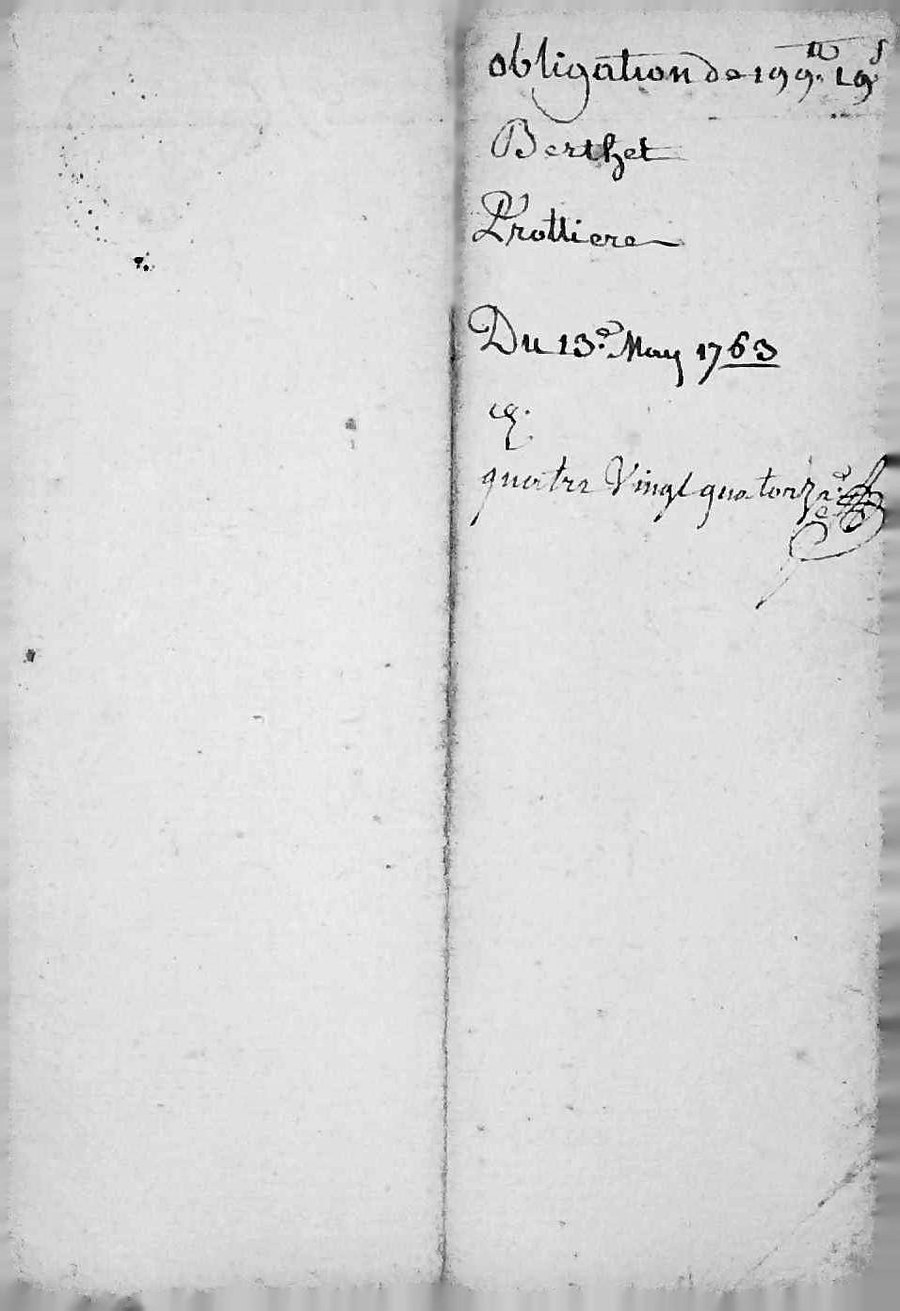 obligation de 199.ᵗᵗ 19.ˢ
Berthet
Prottiere
Du 13.ᵉ May 1763
quatre Vingt quatorze